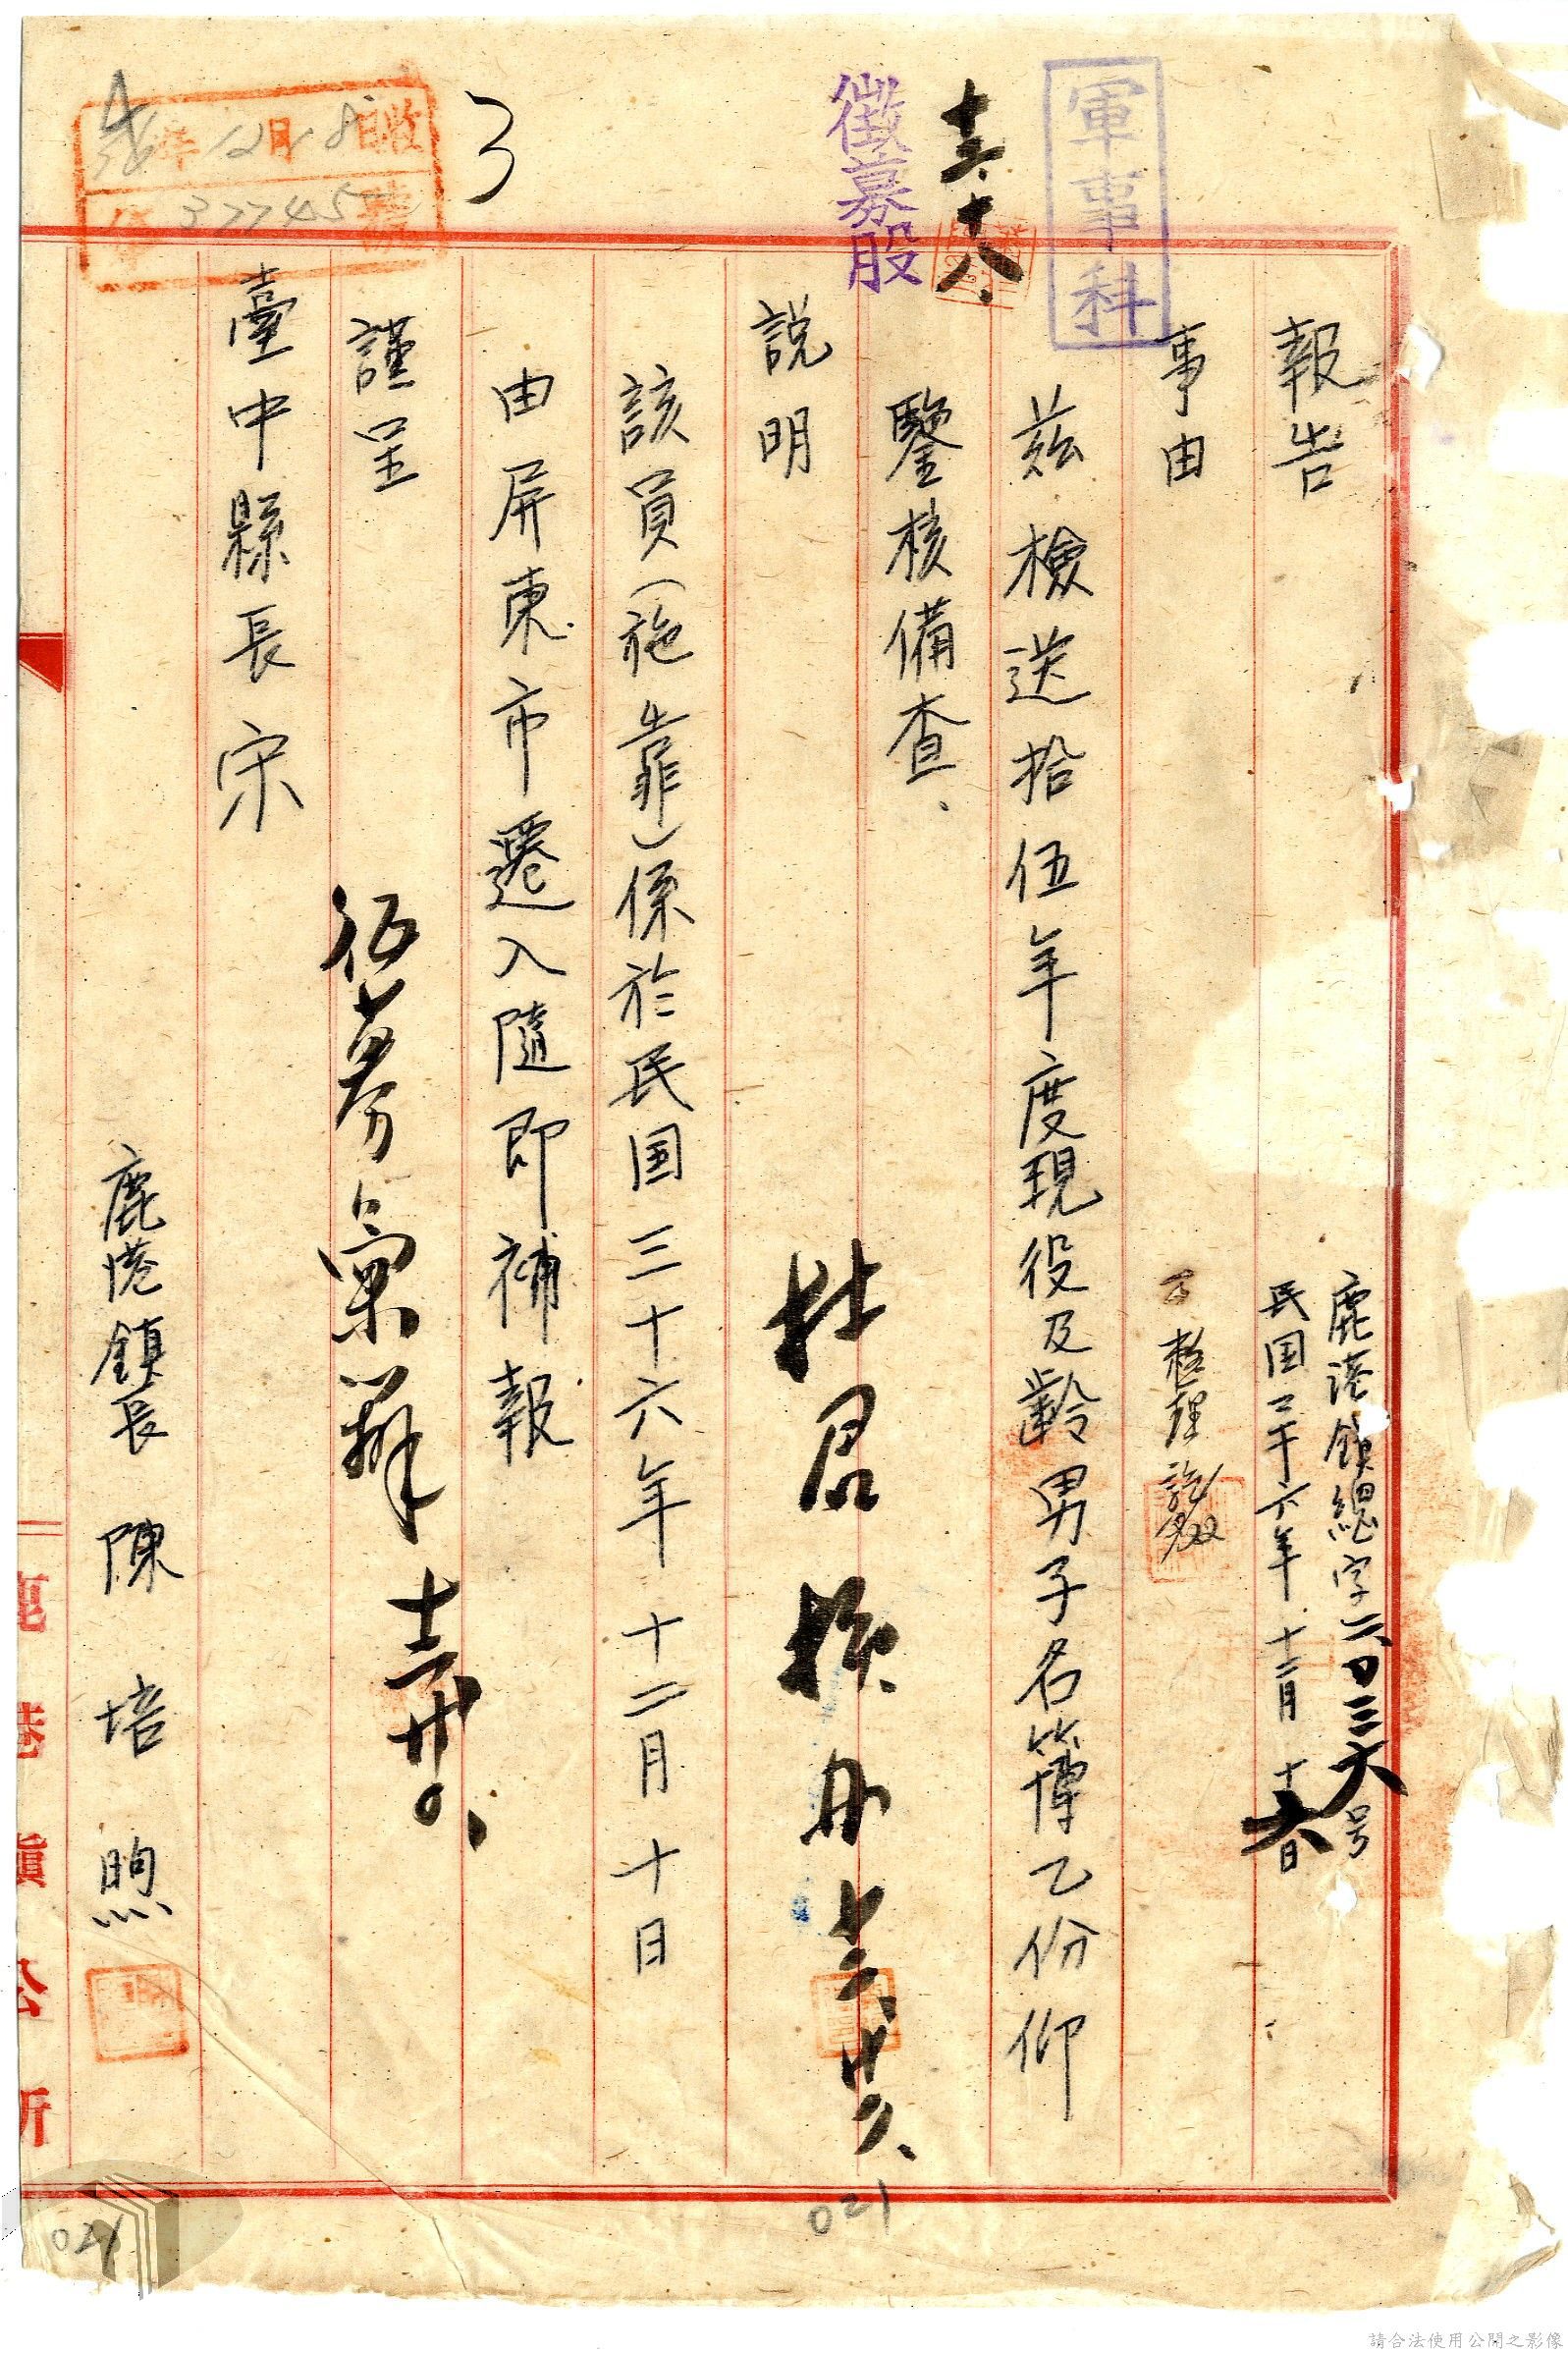 軍事科
徵募股
十二、十八、
年12月18日收
37745
報告
鹿港鎮總字六0三六号
民国三十六年十二月十六日
事由
茲檢送拾伍年度現役及齡男子名簿乙份仰
鑒核備查、
說明
該員(施靠)係於民国三十六年十二月十日
由屏東市遷入隨即補報
謹呈
臺中縣長宋
鹿港鎮長 陳培煦
鹿港鎮公所
021
021
請合法使用公開之影像